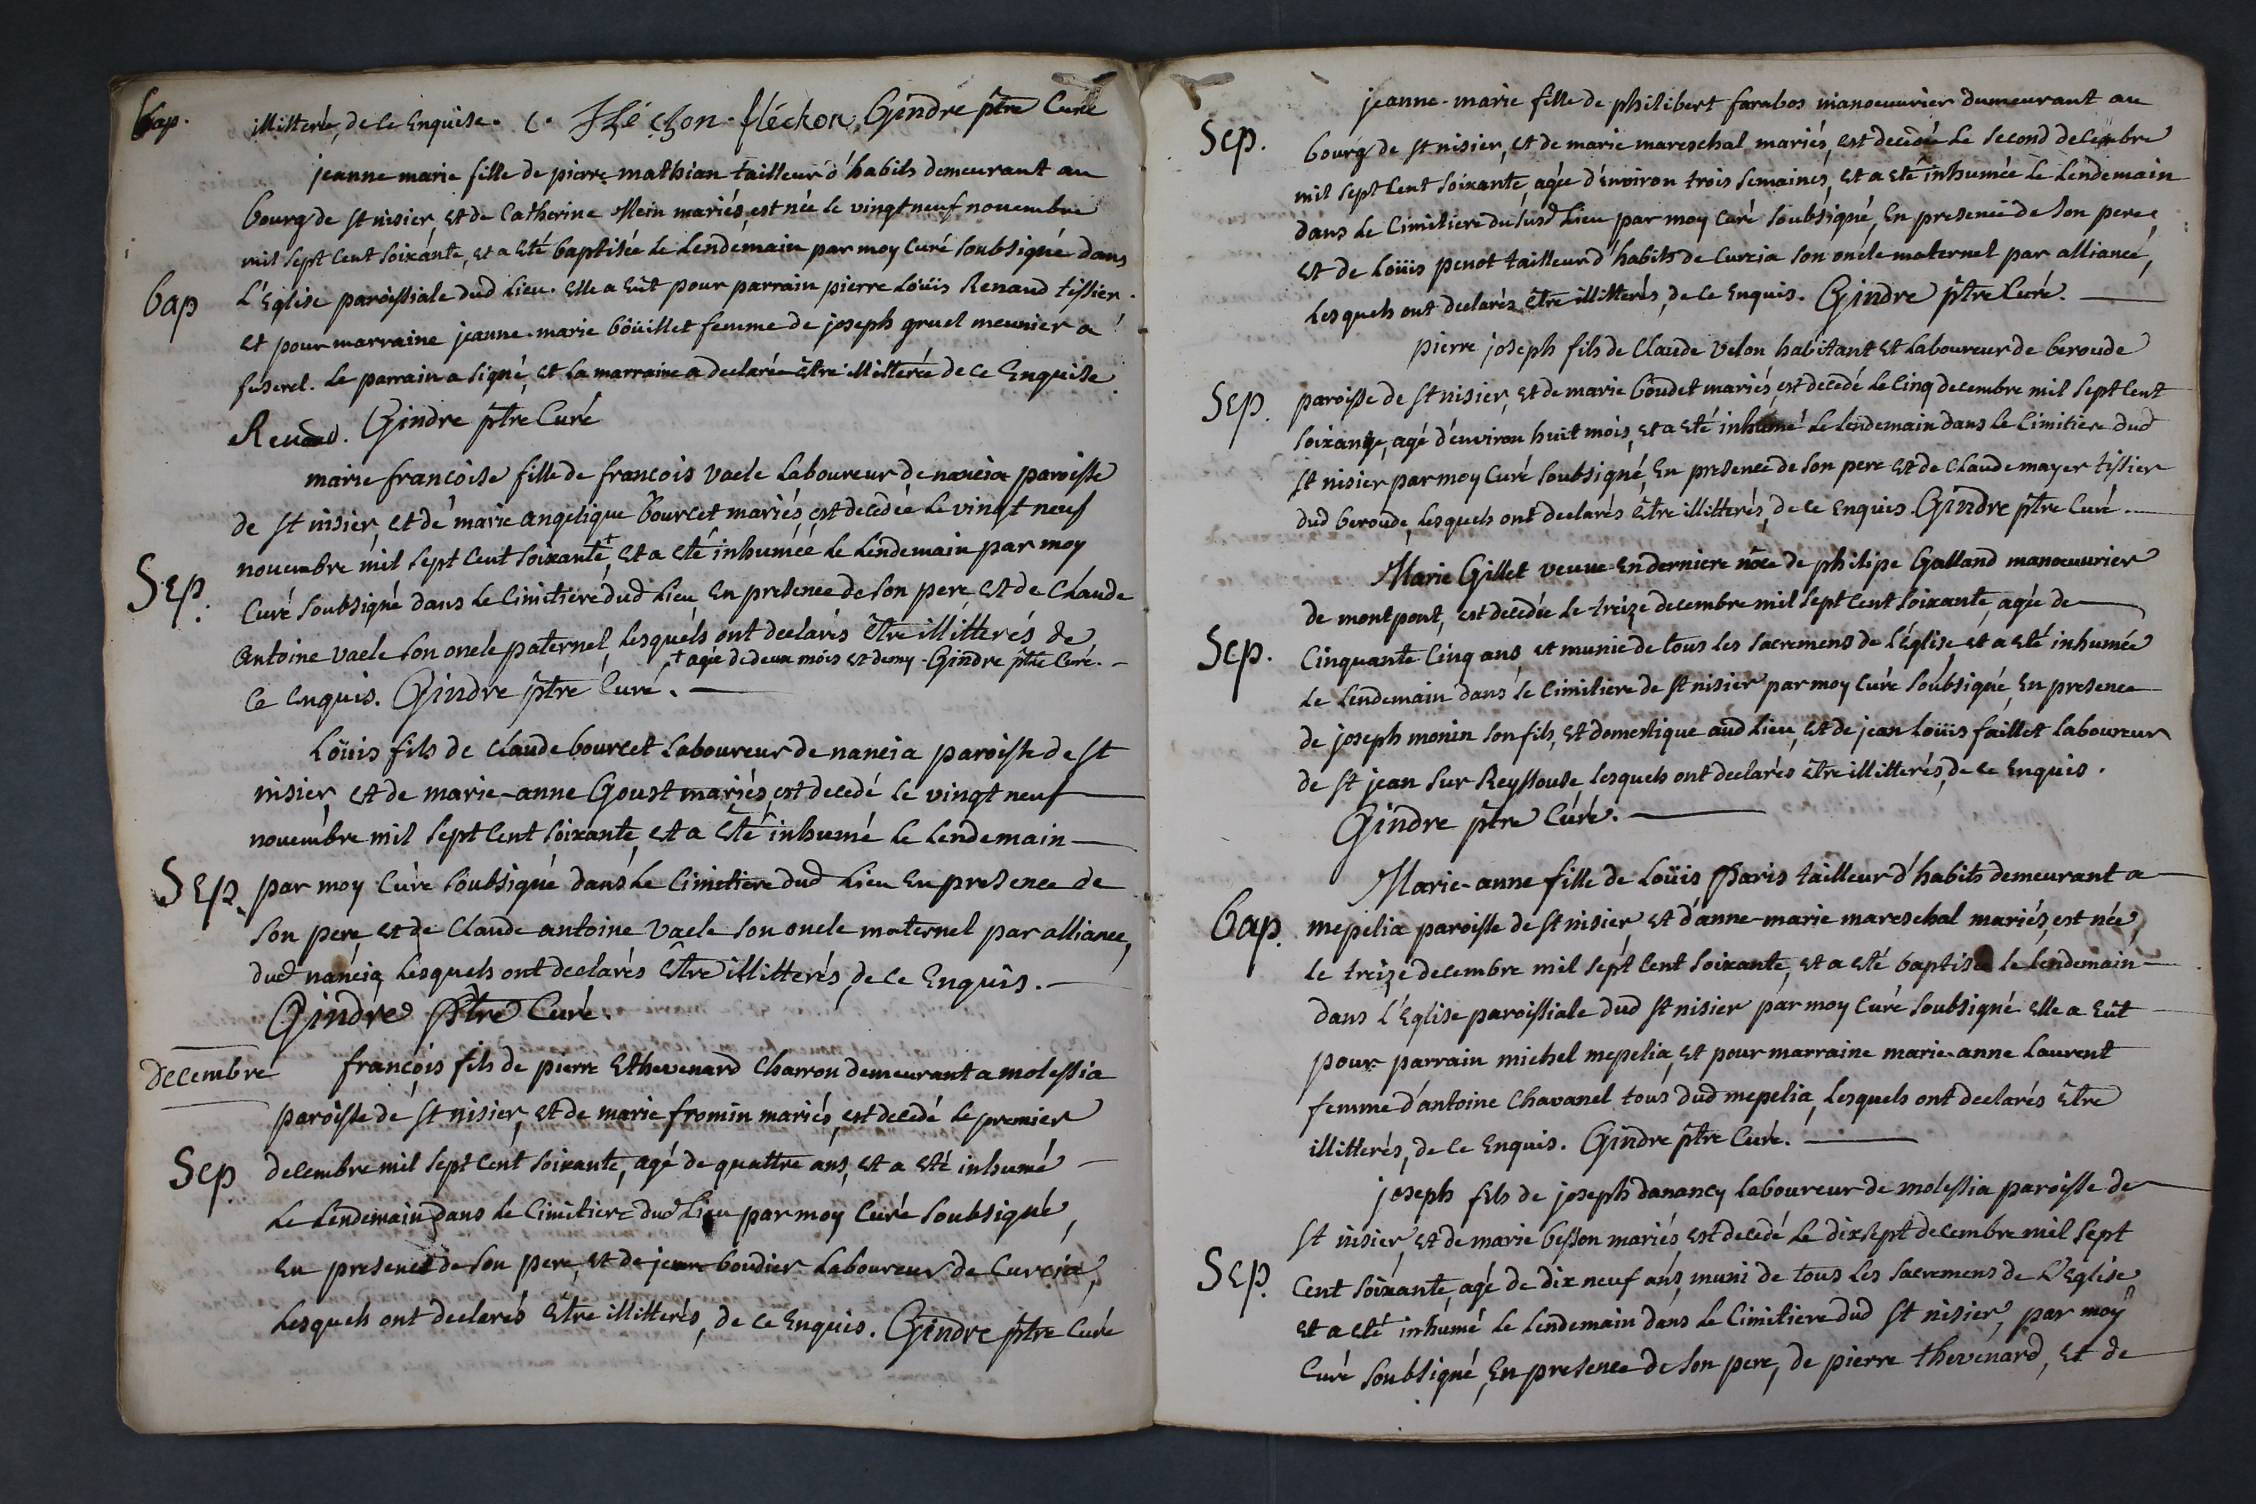 Bap. illitteré, de ce Enquise. C. Fléchon. fléchon, Gindre ptre Curé
jeanne marie fille de pierre mathian tailleur d'habits demeurant au
bourg de st nisier, et de Catherine Mein mariés, est née le vingt neuf novembre
mil sept cent soixante, et a eté baptisée le lendemain par moy curé soubsigné dans
Bap L'Eglise paroissiale dud lieu. elle a eüt pour parrain pierre Loüis Renaud tissier.
et pour marraine jeanne-marie boüillet femme de joseph gruel meunier a
. Le parrain a signé, et la marraine a declarée être illitterée de ce Enquise
Renaud. Gindre ptre Curé
marie francoise fille de francois vaele Laboureur de nancia paroisse
de st nisier, et de marie angelique Bourcet mariés, est decedée le vingt neuf
novembre mil sept cent soixante+, et a eté inhumée le lendemain par moy
Sep. Curé soubsigné dans le Cimitiere dud lieu, en presence de son pere, et de Claude
Antoine vaele son oncle paternel, lesquels ont declarés être illitterés de
+ agée de deux mois et demy - Gindre ptre Curé. -
ce enquis. Gindre ptre Curé.
Loüis fils de Claude bourcet Laboureur de nancia paroisse de st
nisier, et de marie-anne Goust mariés, est decedé le vingt neuf
novembre mil sept cent soixante, et a eté inhumé le lendemain
Sep. par moy Curé soubsigné dans le Cimetiere dud lieu en presence de
son pere, et de Claude antoine vaele son oncle maternel par alliance,
dud nancia, lesquels ont declarés être illitterés, de ce Enquis.
Gindre Ptre Curé.
Decembre françois fils de pierre Ethevenard Charron demeurant a molessia
paroisse de st nisier, et de marie fromin mariés, est decedé le premier
Sep decembre mil sept cent soixante, agé de quattre ans, et a eté inhumé
le lendemain dans le Cimitiere dud lieu par moy Curé soubsigné,
en presence de son pere, et de jean boudier Laboureur de Curcia,
lesquels ont declarés être illitterés, de ce Enquis. Gindre ptre Curé
jeanne-marie fille de philibert farabos manoeuvrier dumeurant au
Sep. bourg de st nisier, et de marie mareschal mariés, est decedée le second decembre
mil sept cent soixante, agée d'environ trois semaines, et a eté inhumée le lendemain
dans le Cimitiere du susd lieu par moy Curé soubsigné, en presence de son pere,
et de Loüis penot tailleur d'habits de Curcia son oncle maternel par alliance,
lesquels ont declarés être illitterés, de ce Enquis. Gindre ptre Curé.
pierre joseph fils de Claude Velon habitant et Laboureur de beroude
Sep. paroisse de st nisier, et de marie boudet mariés, est decedé le cinq decembre mil sept cent
soixante, agé d'environ huit mois, et a eté inhumé le lendemain dans le Cimitiere dud
st nisier par moy Curé soubsigné, en presence de son pere et de Claude mayer tissier
dud beroude, lesquels ont declarés être illitterés, de ce enquis. Gindre ptre Curé.
Marie Gillet veuve en derniere nôce de philipe Galland manoeuvrier
de montpont, est decedée le treize decembre mil sept cent soixante agée de
Sep. Cinquante Cinq ans, et munie de tous les sacremens de l'église, et a eté inhumée
le lendemain dans le Cimitiere de st nisier par moy Curé soubsigné, en presence
de joseph monin son fils, et domestique aud lieu, et de jean Loüis faillet laboureur
de st jean sur Reyssouse lesquels ont declarés être illitterés, de ce Enquis.
Gindre ptre Curé.
Marie-anne fille de Loüis Paris tailleur d'habits demeurant a
Bap. mepelia paroisse de st nisier et d'anne-marie mareschal mariés, est née
le treize decembre mil sept cent soixante, et a eté baptisée le lendemain
dans l'Eglise paroissiale dud st nisier par moy Curé soubsigné elle a eüt
pour parrain michel mepelia, et pour marraine marie-anne Laurent
femme d'antoine Chavanel tous dud mepelia, lesquels ont declarés être
illitterés, de ce Enquis. Gindre ptre Curé.
joseph fils de joseph danancy laboureur de molessia paroisse de
st nisier, et de marie besson mariés, est decedé le dixsept decembre mil sept
Sep. cent soixante, agé de dix neuf ans, muni de tous les sacremens de L'Eglise
et a eté inhumé le lendemain dans le Cimitiere dud st nisier, par moy
Curé soubsigné, en presence de son pere, de pierre thevenard, et de